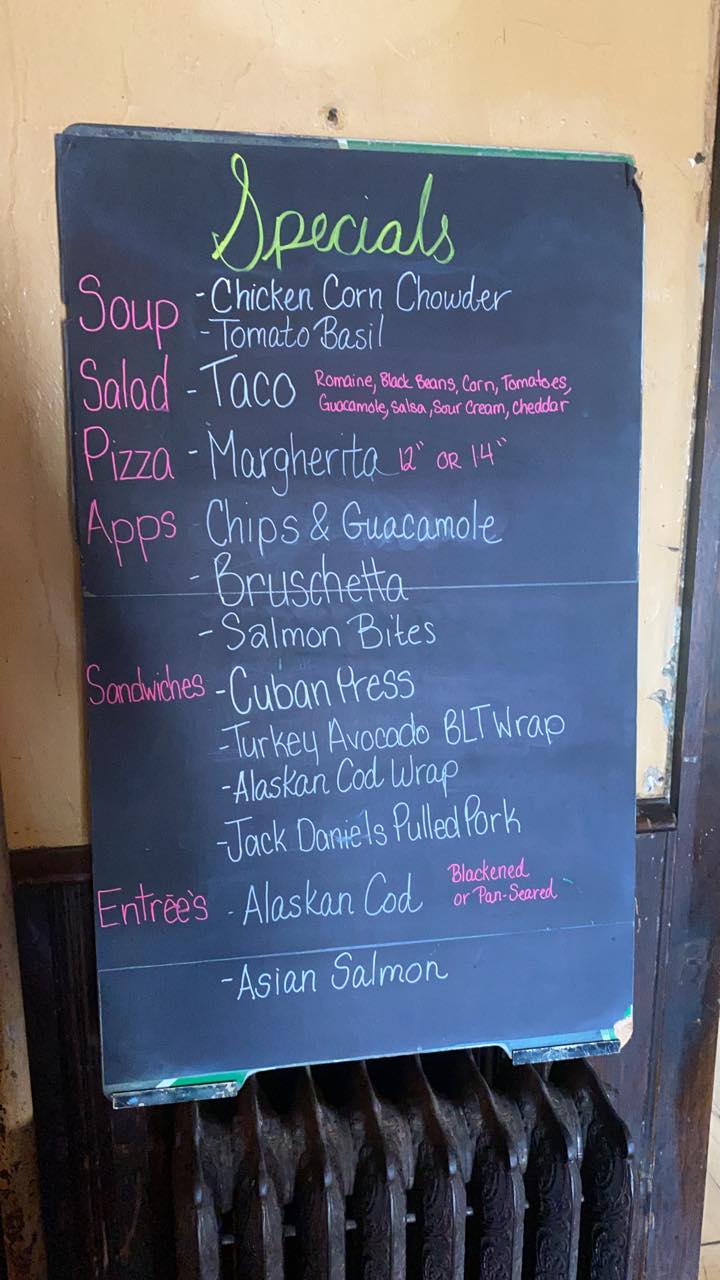 Specials
Soup - Chicken Corn Chowder
- Tomato Basil
Salad - Taco Romaine, Black Beans, Corn, Tomatoes,
Guacamole, Salsa, Sour Cream, Cheddar
Pizza - Margherita 12" OR 14"
Apps Chips & Guacamole
- Bruschetta
- Salmon Bites
Sandwiches - Cuban Press
- Turkey Avocado BLT Wrap
- Alaskan Cod Wrap
- Jack Daniels Pulled Pork
Entrēe's - Alaskan Cod Blackened
or Pan-Seared
- Asian Salmon